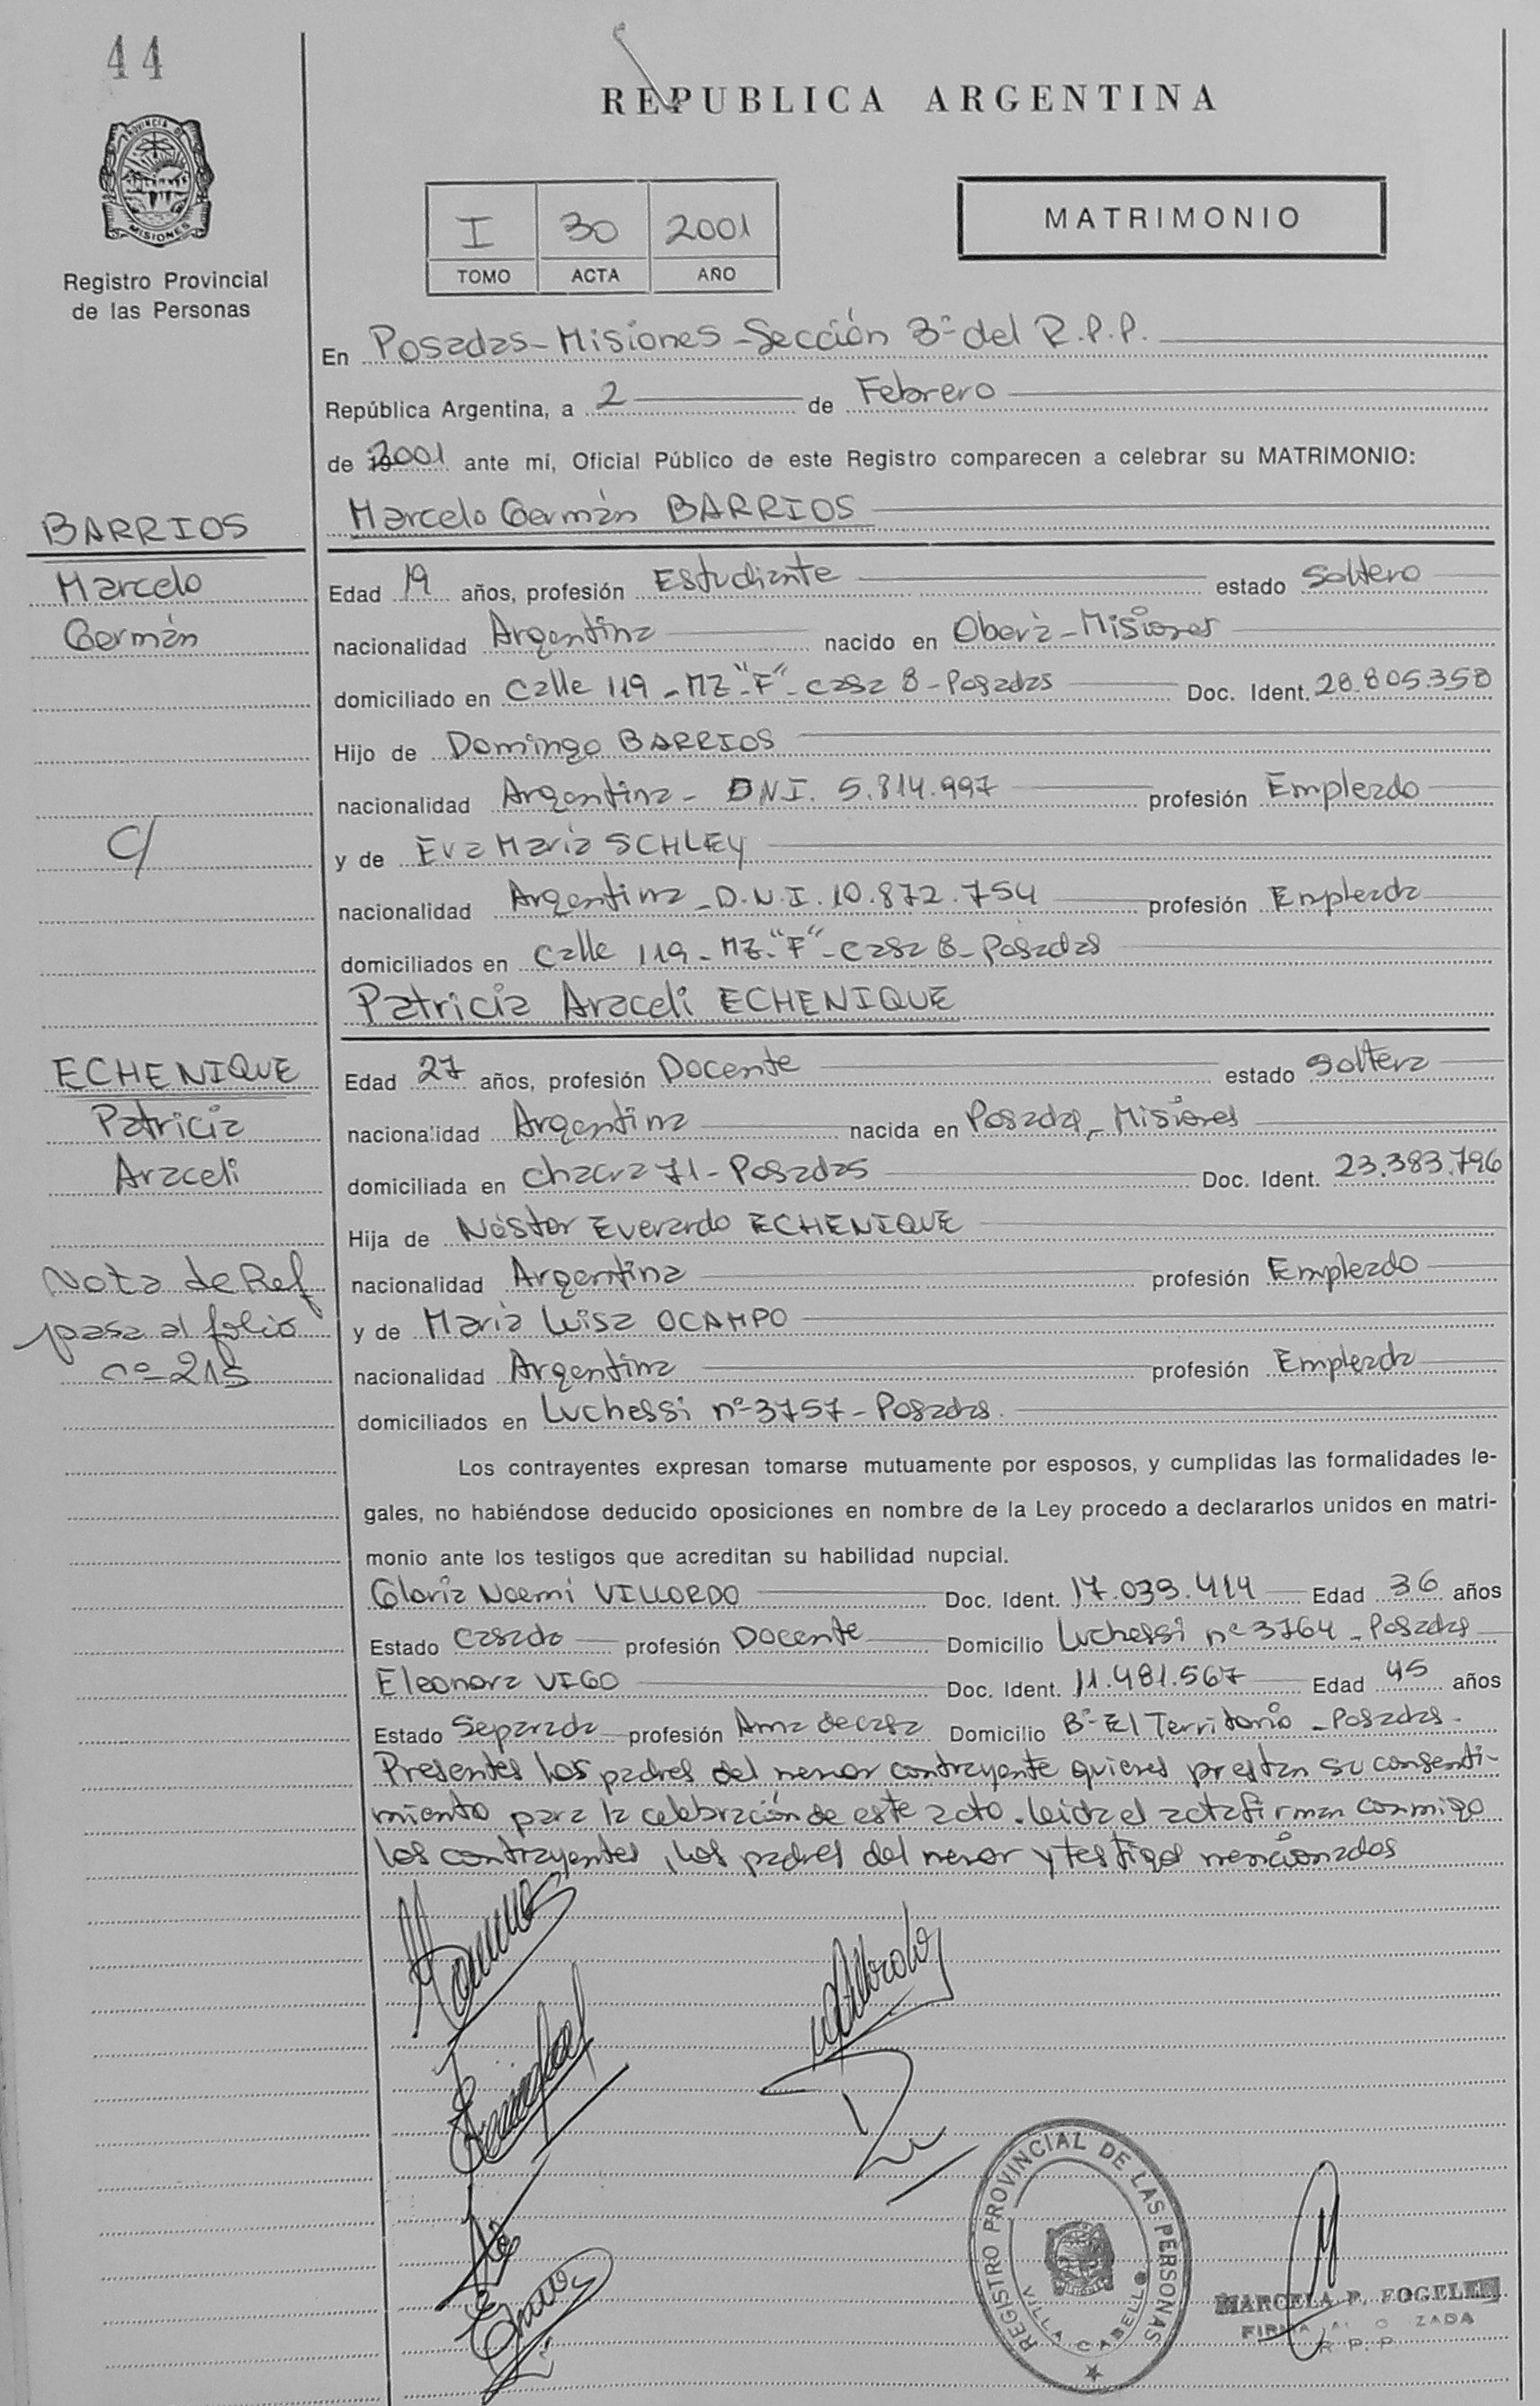 44
REPUBLICA ARGENTINA
PROVINCIA DE
MISIONES
Registro Provincial
de las Personas
I 30 2001
TOMO ACTA AÑO
MATRIMONIO
En Posadas-Misiones-Sección 3ª del R.P.P.
República Argentina, a 2 de Febrero
de 2001 ante mí, Oficial Público de este Registro comparecen a celebrar su MATRIMONIO:
BARRIOS
Marcelo
Germán
Marcelo Germán BARRIOS
Edad 19 años, profesión Estudiante estado Soltero
nacionalidad Argentina nacido en Oberá-Misiones
domiciliado en Calle 119-MZ "F"-casa 8-Posadas Doc. Ident. 28.805.358
Hijo de Domingo BARRIOS
nacionalidad Argentina- DNI. 5.814.997 profesión Empleado
C/
y de Eva María SCHLEY
nacionalidad Argentina-D.N.I.10.872.754 profesión Empleada
domiciliados en Calle 119-MZ-"F"-Casa 8-Posadas
Patricia Araceli ECHENIQUE
ECHENIQUE
Patricia
Araceli
Edad 27 años, profesión Docente estado Soltera
nacionalidad Argentina nacida en Posadas-Misiones
domiciliada en Chacra 71-Posadas Doc. Ident. 23.383.796
Hija de Néstor Everardo ECHENIQUE
Nota de Ref
pasa al folio
nº-215
nacionalidad Argentina profesión Empleado
y de María Luisa OCAMPO
nacionalidad Argentina profesión Empleada
domiciliados en Luchessi nº3757-Posadas.
Los contrayentes expresan tomarse mutuamente por esposos, y cumplidas las formalidades le-
gales, no habiéndose deducido oposiciones en nombre de la Ley procedo a declararlos unidos en matri-
monio ante los testigos que acreditan su habilidad nupcial.
Gloria Noemi VILLORDO Doc. Ident. 17.039.414 Edad 36 años
Estado Casada profesión Docente Domicilio Luchessi nº3764-Posadas
Eleonora VIGO Doc. Ident. 11.481.567 Edad 45 años
Estado Separada profesión Ama de casa Domicilio Bº-El Territorio-Posadas-
Presentes los padres del menor contrayente quienes prestan su consenti-
miento para la celebración de este acto. Leida el acta firman conmigo
los contrayentes, los padres del menor y testigos mencionados
REGISTRO PROVINCIAL DE LAS PERSONAS
VILLA CABELLO
MARCELA P. FOGELER
R.P.P.